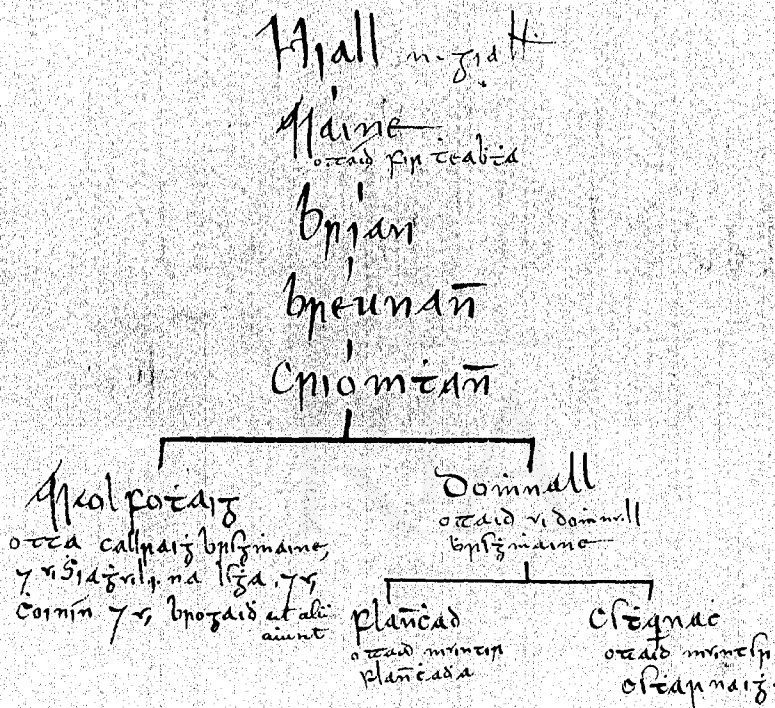 Niall n-giall
Maine
ottaid fir teaḃṫa
Brian
Breunan̄
Criomṫan̄
Maolfoṫaig
otta callraiġ breġmaine,
⁊ ui Siaġ na leġa, ⁊ ui
Coinín ⁊ ui brogaid et alii
aiunt
Domnall
ottaid ui domnaill
breġmaine
Flan̄ċad
ottaid muintir
Flan̄ċada
Ceṫarnaċ
ottaid muintir